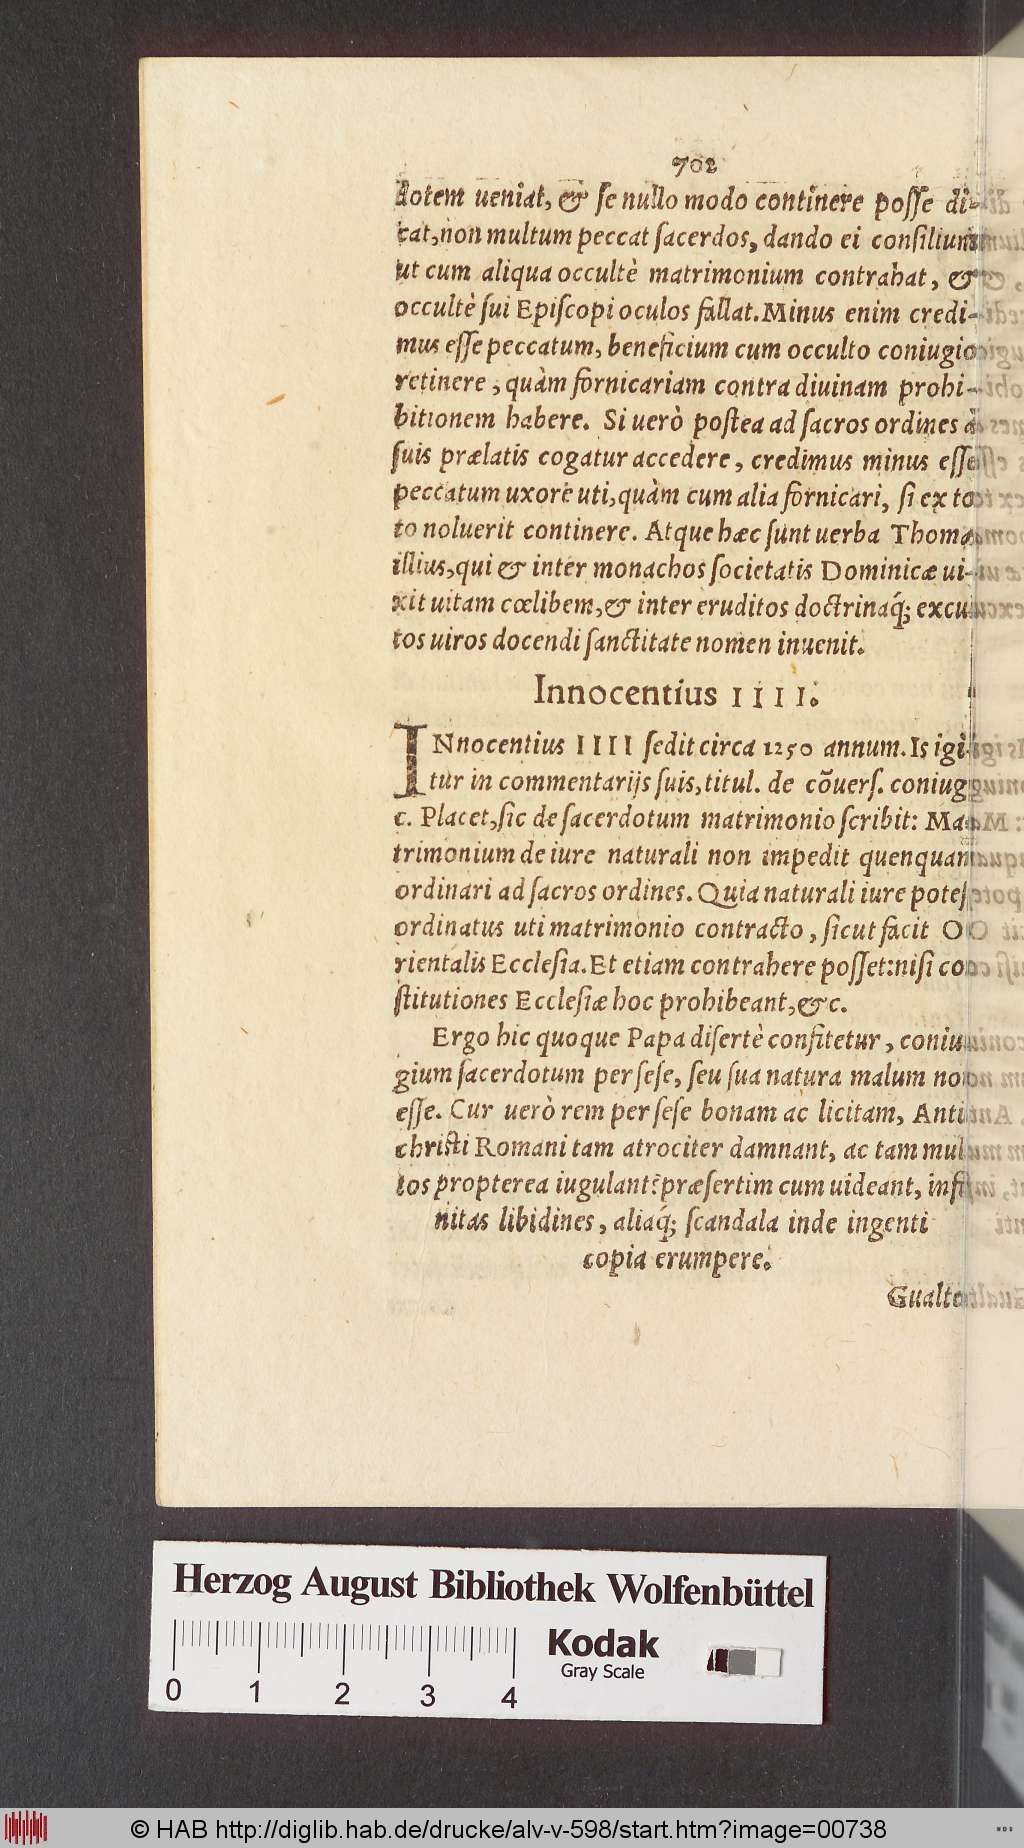 702
dotem ueniat, & se nullo modo continere posse di-
cat, non multum peccat sacerdos, dando ei consilium
ut cum aliqua occultè matrimonium contrahat, &
occultè sui Episcopi oculos fallat. Minus enim credi-
mus esse peccatum, beneficium cum occulto coniugio
retinere, quàm fornicariam contra diuinam prohi-
bitionem habere. Si uerò postea ad sacros ordines à
suis prælatis cogatur accedere, credimus minus esse
peccatum uxore uti, quàm cum alia fornicari, si ex to
to noluerit continere. Atque hæc sunt uerba Thomæ
illius, qui & inter monachos societatis Dominicæ ui-
xit uitam cœlibem, & inter eruditos doctrinaq́; excul
tos uiros docendi sanctitate nomen inuenit.
Innocentius IIII.
INnocentius IIII sedit circa 1250 annum. Is igi
tur in commentarijs suis, titul. de cōuers. coniug
c. Placet, sic de sacerdotum matrimonio scribit: Ma
trimonium de iure naturali non impedit quenquam
ordinari ad sacros ordines. Quia naturali iure potest
ordinatus uti matrimonio contracto, sicut facit O
rientalis Ecclesia. Et etiam contrahere posset: nisi con
stitutiones Ecclesiæ hoc prohibeant, &c.
Ergo hic quoque Papa disertè confitetur, coniu
gium sacerdotum per sese, seu sua natura malum non
esse. Cur uerò rem per sese bonam ac licitam, Anti
christi Romani tam atrociter damnant, ac tam mul
tos propterea iugulant? præsertim cum uideant, infi
nitas libidines, aliaq́; scandala inde ingenti
copia erumpere.
Gualte
Herzog August Bibliothek Wolfenbüttel
Kodak
Gray Scale
0 1 2 3 4
© HAB http://diglib.hab.de/drucke/alv-v-598/start.htm?image=00738